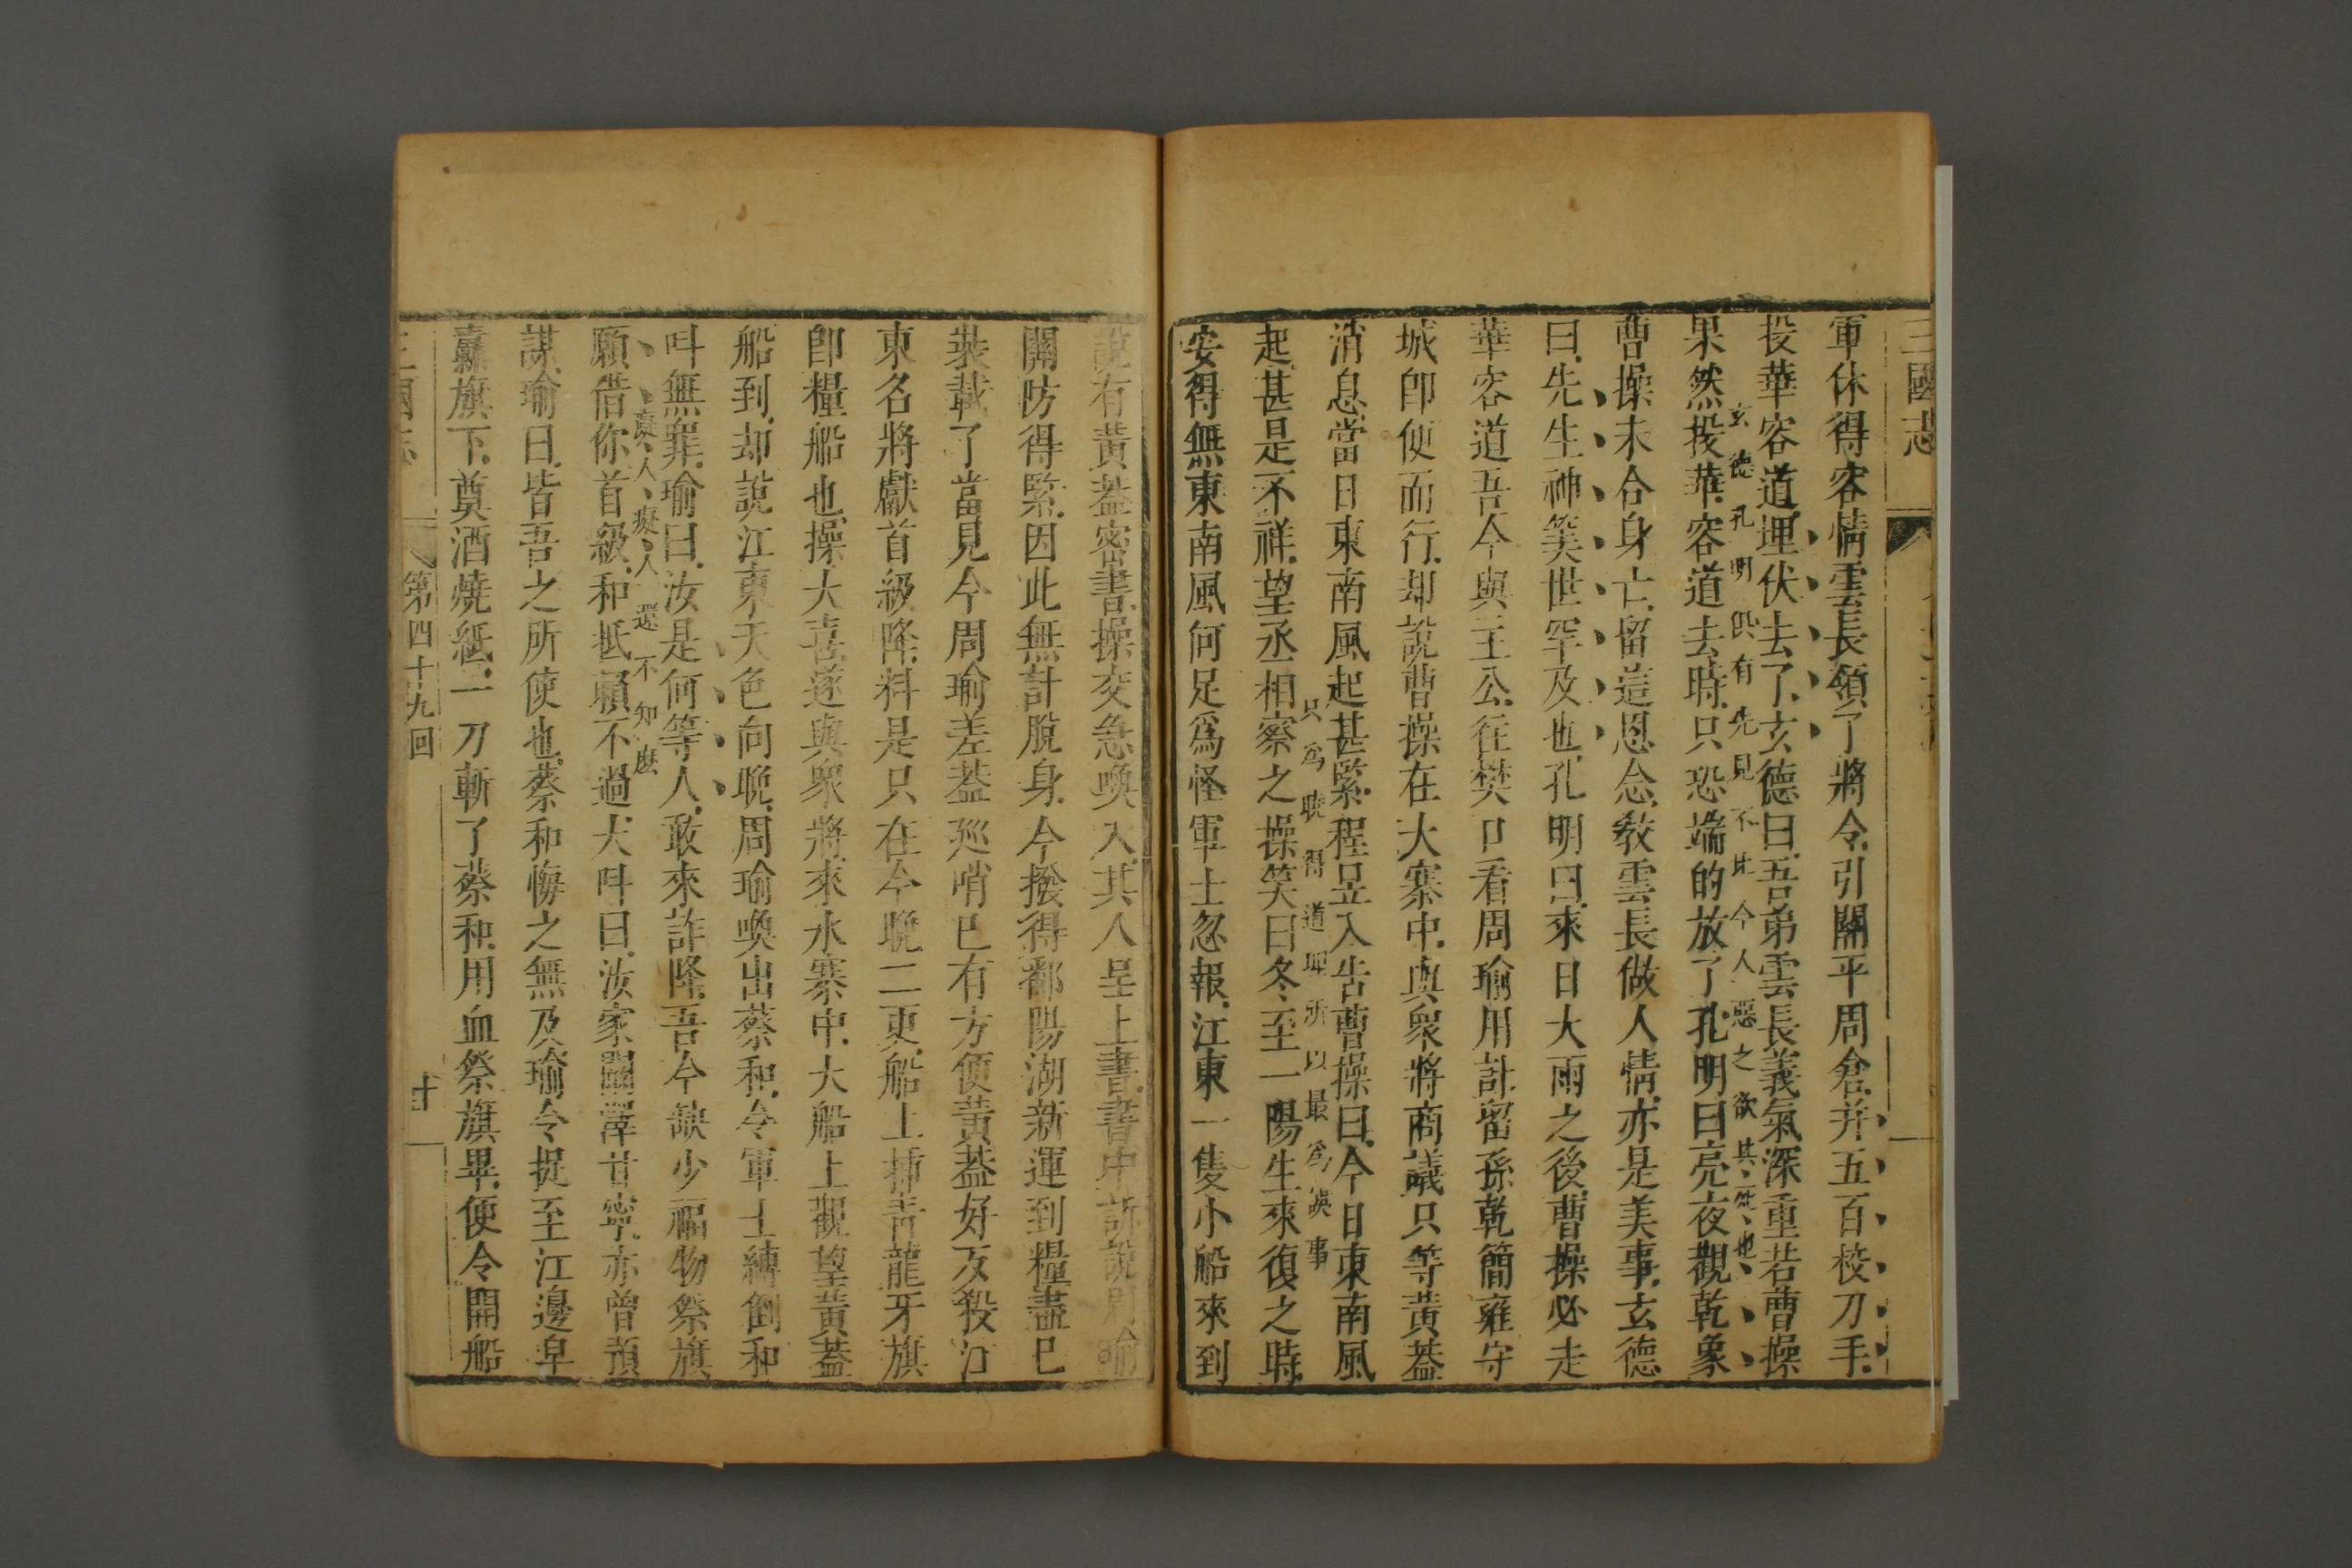 三國志
軍休得容情雲長領了將令引關平周倉并五百校刀手
投華容道埋伏去了玄德曰吾弟雲長義氣深重若曹操
玄德孔明俱有先見不比今人惡之欲其死也
果然投華容道去時只恐端的放了孔明曰亮夜觀乾象
曹操未合身亡留這恩念敎雲長做人情亦是美事玄德
曰先生神筭世罕及也孔明曰來日大雨之後曹操必走
華容道吾今與主公往樊口看周瑜用計留孫乾簡雍守
城卽便而行却說曹操在大寨中與衆將商議只等黃葢
消息當日東南風起甚緊程昱入告曹操曰今日東南風
只爲曉得道理所以最爲誤事
起甚是不祥望丞相察之操笑曰冬至一陽生來復之時
安得無東南風何足爲怪軍士忽報江東一隻小船來到
說有黃葢密書操交急喚入其人呈上書書中訴說周瑜
關防得緊因此無計脫身今撥得鄱陽湖新運到糧盡已
裝載了當見今周瑜差葢廵哨已有方便黃葢好歹殺江
東名將獻首級降料是只在今晚二更船上揷靑龍牙旗
卽糧船也操大喜遂與衆將來水寨中大船上觀望黃葢
船到却說江東天色向晚周瑜喚出蔡和令軍士縛倒和
叫無罪瑜曰汝是何等人敢來詐降吾今缺少福物祭旗
癡人癡人還不知麽
願借你首級和抵賴不過大叫曰汝家闞澤甘寧亦曾預
謀瑜曰皆吾之所使也蔡和悔之無及瑜令捉至江邊皁
纛旗下奠酒燒紙一刀斬了蔡和用血祭旗畢便令開船
三國志 第四十九回 十